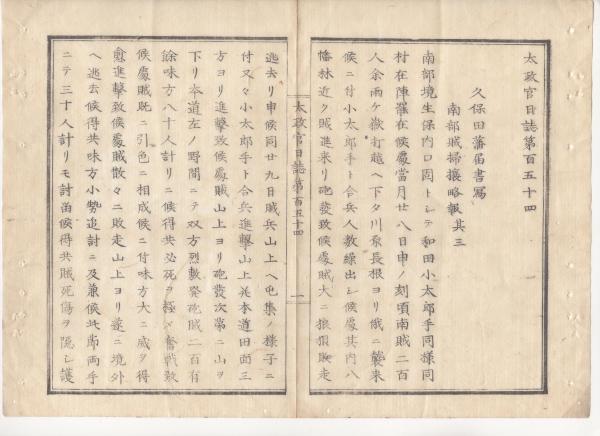 太政官日誌第百五十四
久保田藩届書寫
南部賊掃攘略報其三
南部境生保内口固トシテ和田小太郎手同様同
村在陣罷在候處當月廿八日申ノ刻頃南賊二百
人余両ケ嶽打越ヘ下タ川原長根ヨリ俄ニ襲来
候ニ付小太郎手ト合兵人数繰出シ候處其内八
幡林近ク賊進来リ砲發致候處賊大ニ狼狽敗走
太政官日誌第百五十四
一
逃去リ申候同廿九日賊兵山上ヘ屯集ノ様子ニ
付又々小太郎手ト合兵進撃山上並本道田面三
方ヨリ進撃致候處賊山上ヨリ砲發次第ニ山ヲ
下リ本道左ノ野間ニテ双方烈敷發砲賊二百有
餘味方八十人計リニ候得共必死ヲ極メ奮戰致
候處賊既ニ引色ニ相成候ニ付味方大ニ威ヲ得
愈進撃致候處賊散々ニ敗走山上ヨリ遂ニ境外
ヘ逃去候得共味方小勢追討ニ及兼候此節両手
ニテ三十人計リモ討留候得共賊死傷ヲ隠シ護